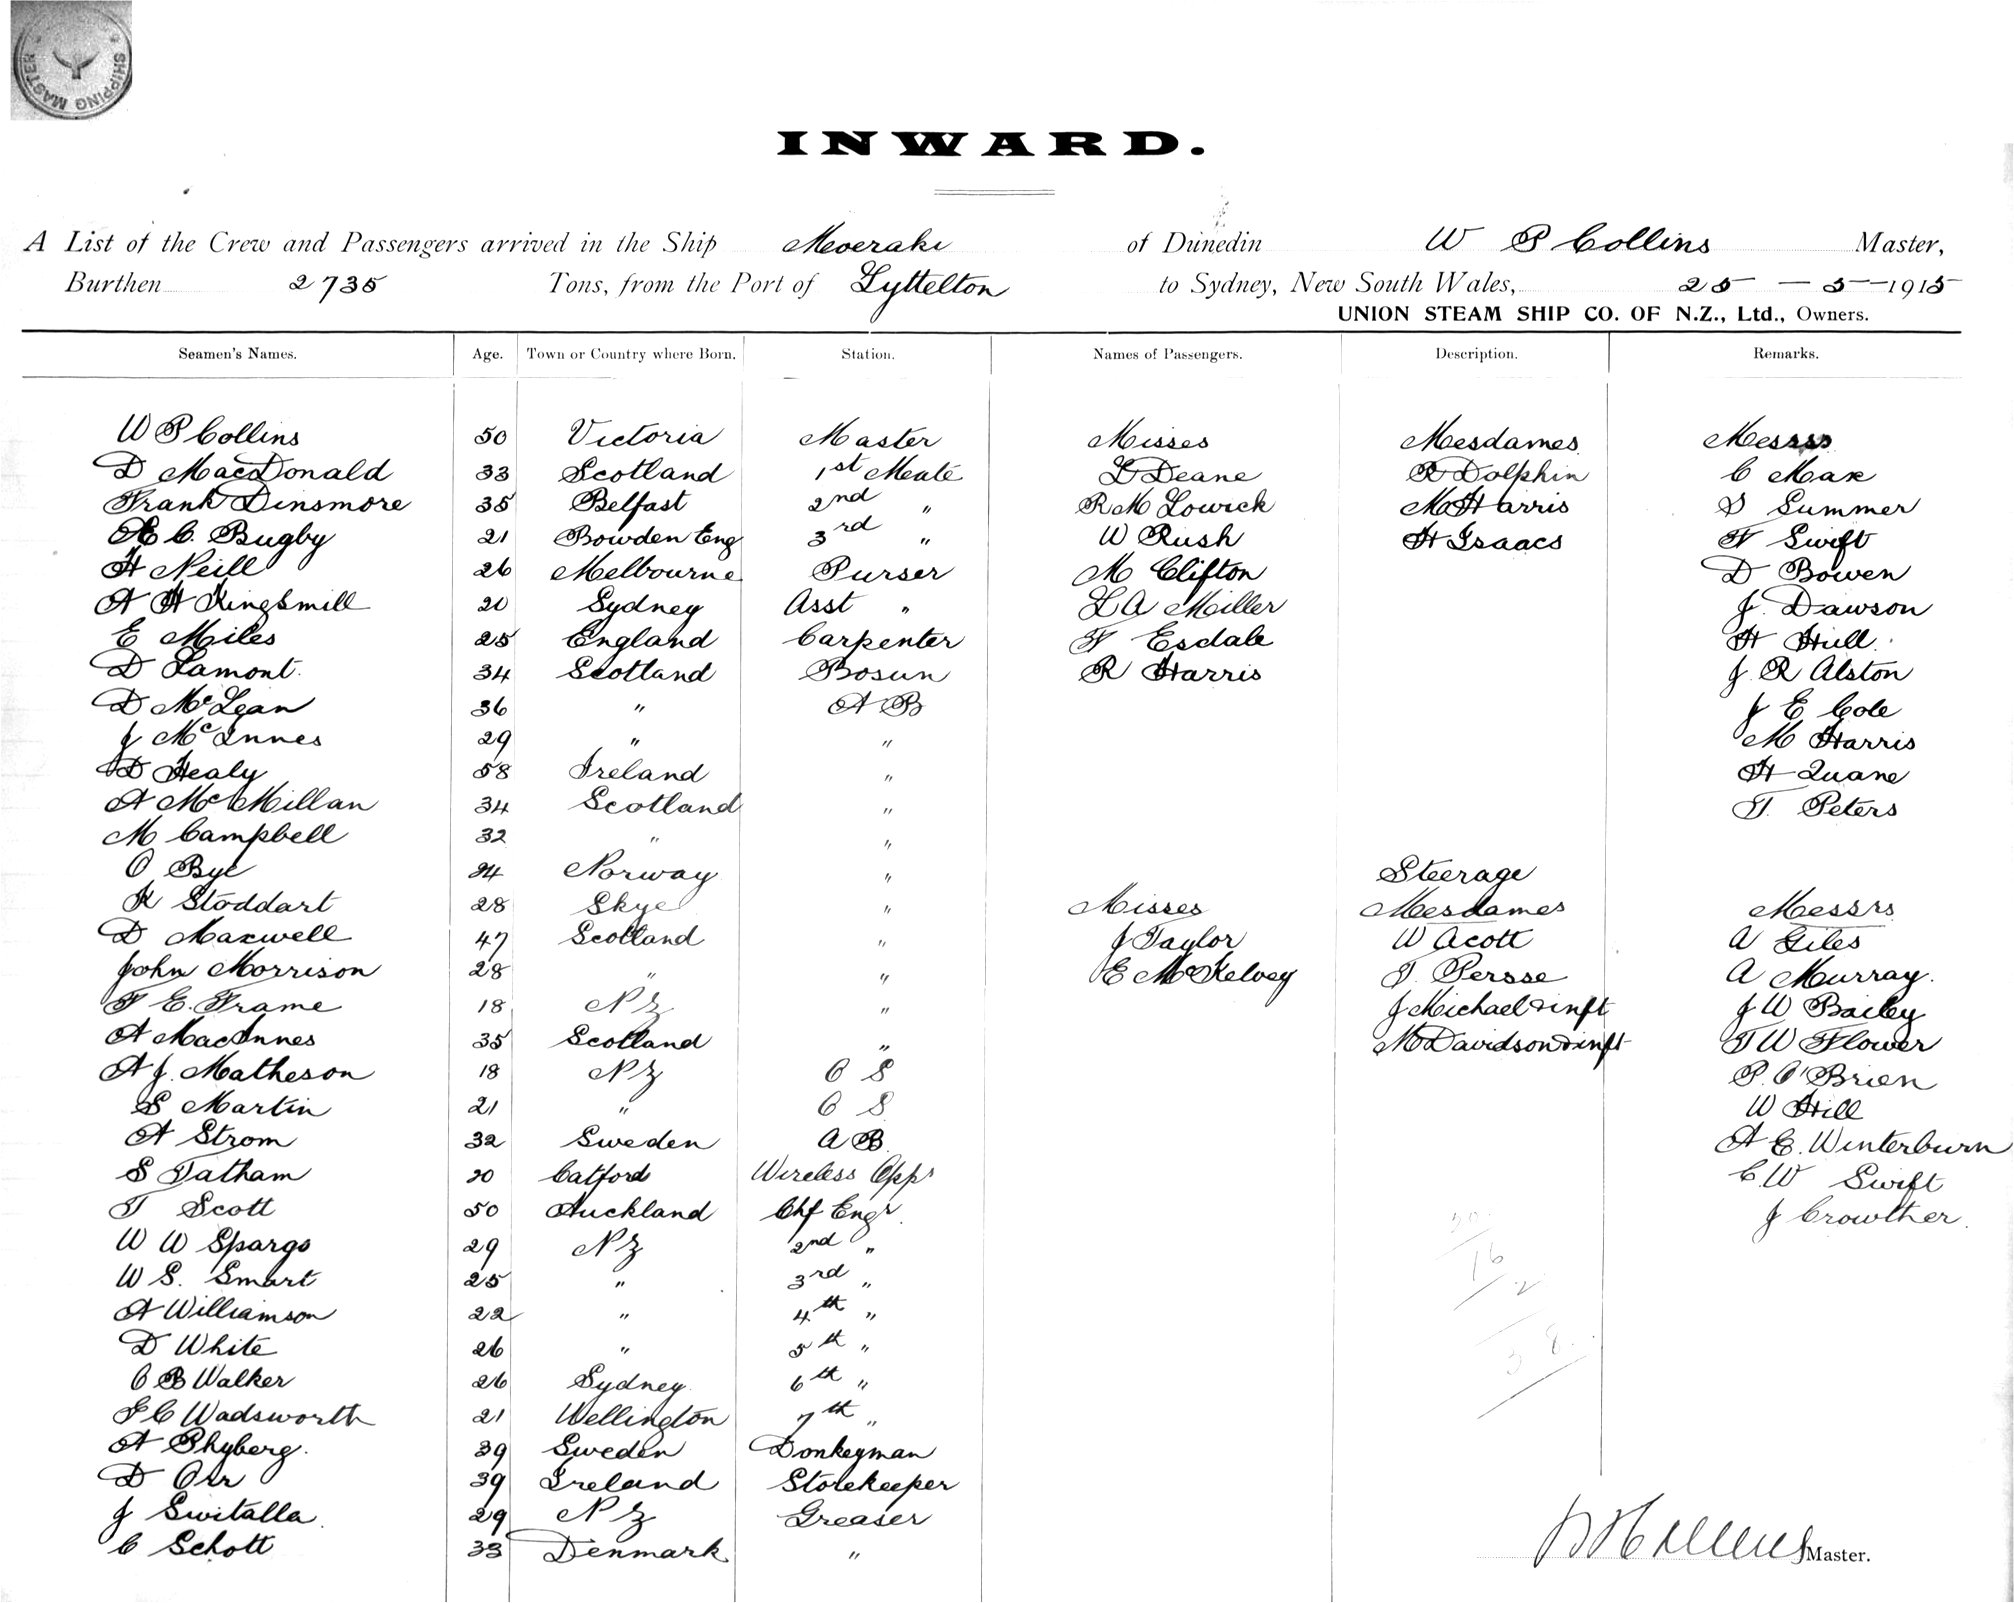 SHIPPING MASTER
INWARD.
A List of the Crew and Passengers arrived in the Ship Moeraki of Dunedin W P Collins Master,
Burthen 2735 Tons, from the Port of Lyttelton to Sydney, New South Wales, 25 – 5 – 1915
UNION STEAM SHIP CO. OF N.Z., Ltd., Owners.
Seamen's Names. Age. Town or Country where Born. Station. Names of Passengers. Description. Remarks.
W P Collins 50 Victoria Master Misses Mesdames Messrs
D MacDonald 33 Scotland 1st Mate L Deane R Dolphin C Max
Frank Dinsmore 35 Belfast 2nd " R M Lowick M Harris S Summer
A C. Bugby 21 Bowden Eng 3rd " W Rush H Isaacs F Swift
H Neill 26 Melbourne Purser M Clifton D Bowen
A H Kingsmill 20 Sydney Asst " L A Miller J. Dawson
E Miles 25 England Carpenter F Esdale H Hull
D Lamont. 34 Scotland Bosun R Harris J. R Alston
D McLean 36 " A B J E Cole
J McInnes 29 " " M Harris
D Healy 58 Ireland " H Quane
A McMillan 34 Scotland " T. Peters
M Campbell 32 " "
O Bye 24 Norway " Steerage
K Stoddart 28 Skye " Misses Mesdames Messrs
D Maxwell 47 Scotland " J Taylor W Acott A Giles
John Morrison 28 " " E McKelvey T. Persse A Murray.
F E. Frame 18 NZ " J Michael & inft J W Bailey
A MacInnes 35 Scotland " M Davidson & inft T W Flower
A J. Matheson 18 NZ O S P. O'Brien
S Martin 21 " O S W Hill
A Strom 32 Sweden A B A E. Winterburn
S Tatham 20 Catford Wireless Oppr C W Swift
T Scott 50 Auckland Chf Engr. J Crowther.
W W Spargo 29 NZ 2nd "
W S. Smart 25 " 3rd "
A Williamson 22 " 4th "
D White 26 " 5th "
O B Walker 26 Sydney 6th "
F C Wadsworth 21 Wellington 7th "
A Phyberg. 39 Sweden Donkeyman
D Orr 39 Ireland Storekeeper
J Switalla 29 NZ Greaser
C Schott 33 Denmark "
Master.